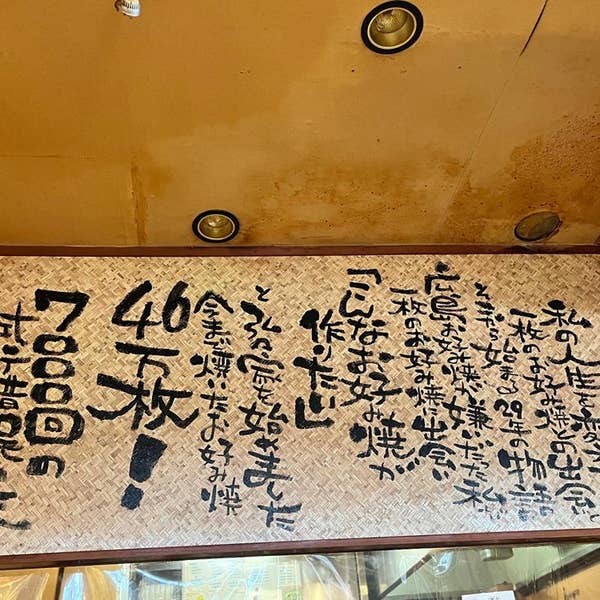 私の人生を変え
一枚のお好み焼との出会い
それから始まる29年の物語
広島お好み焼が嫌いだった私が
一枚のお好み焼に出会い
「こんなお好み焼が
作りたい」
と弘宓を始めました
今まで焼いたお好み焼
46万枚!
7000回の
試行錯誤